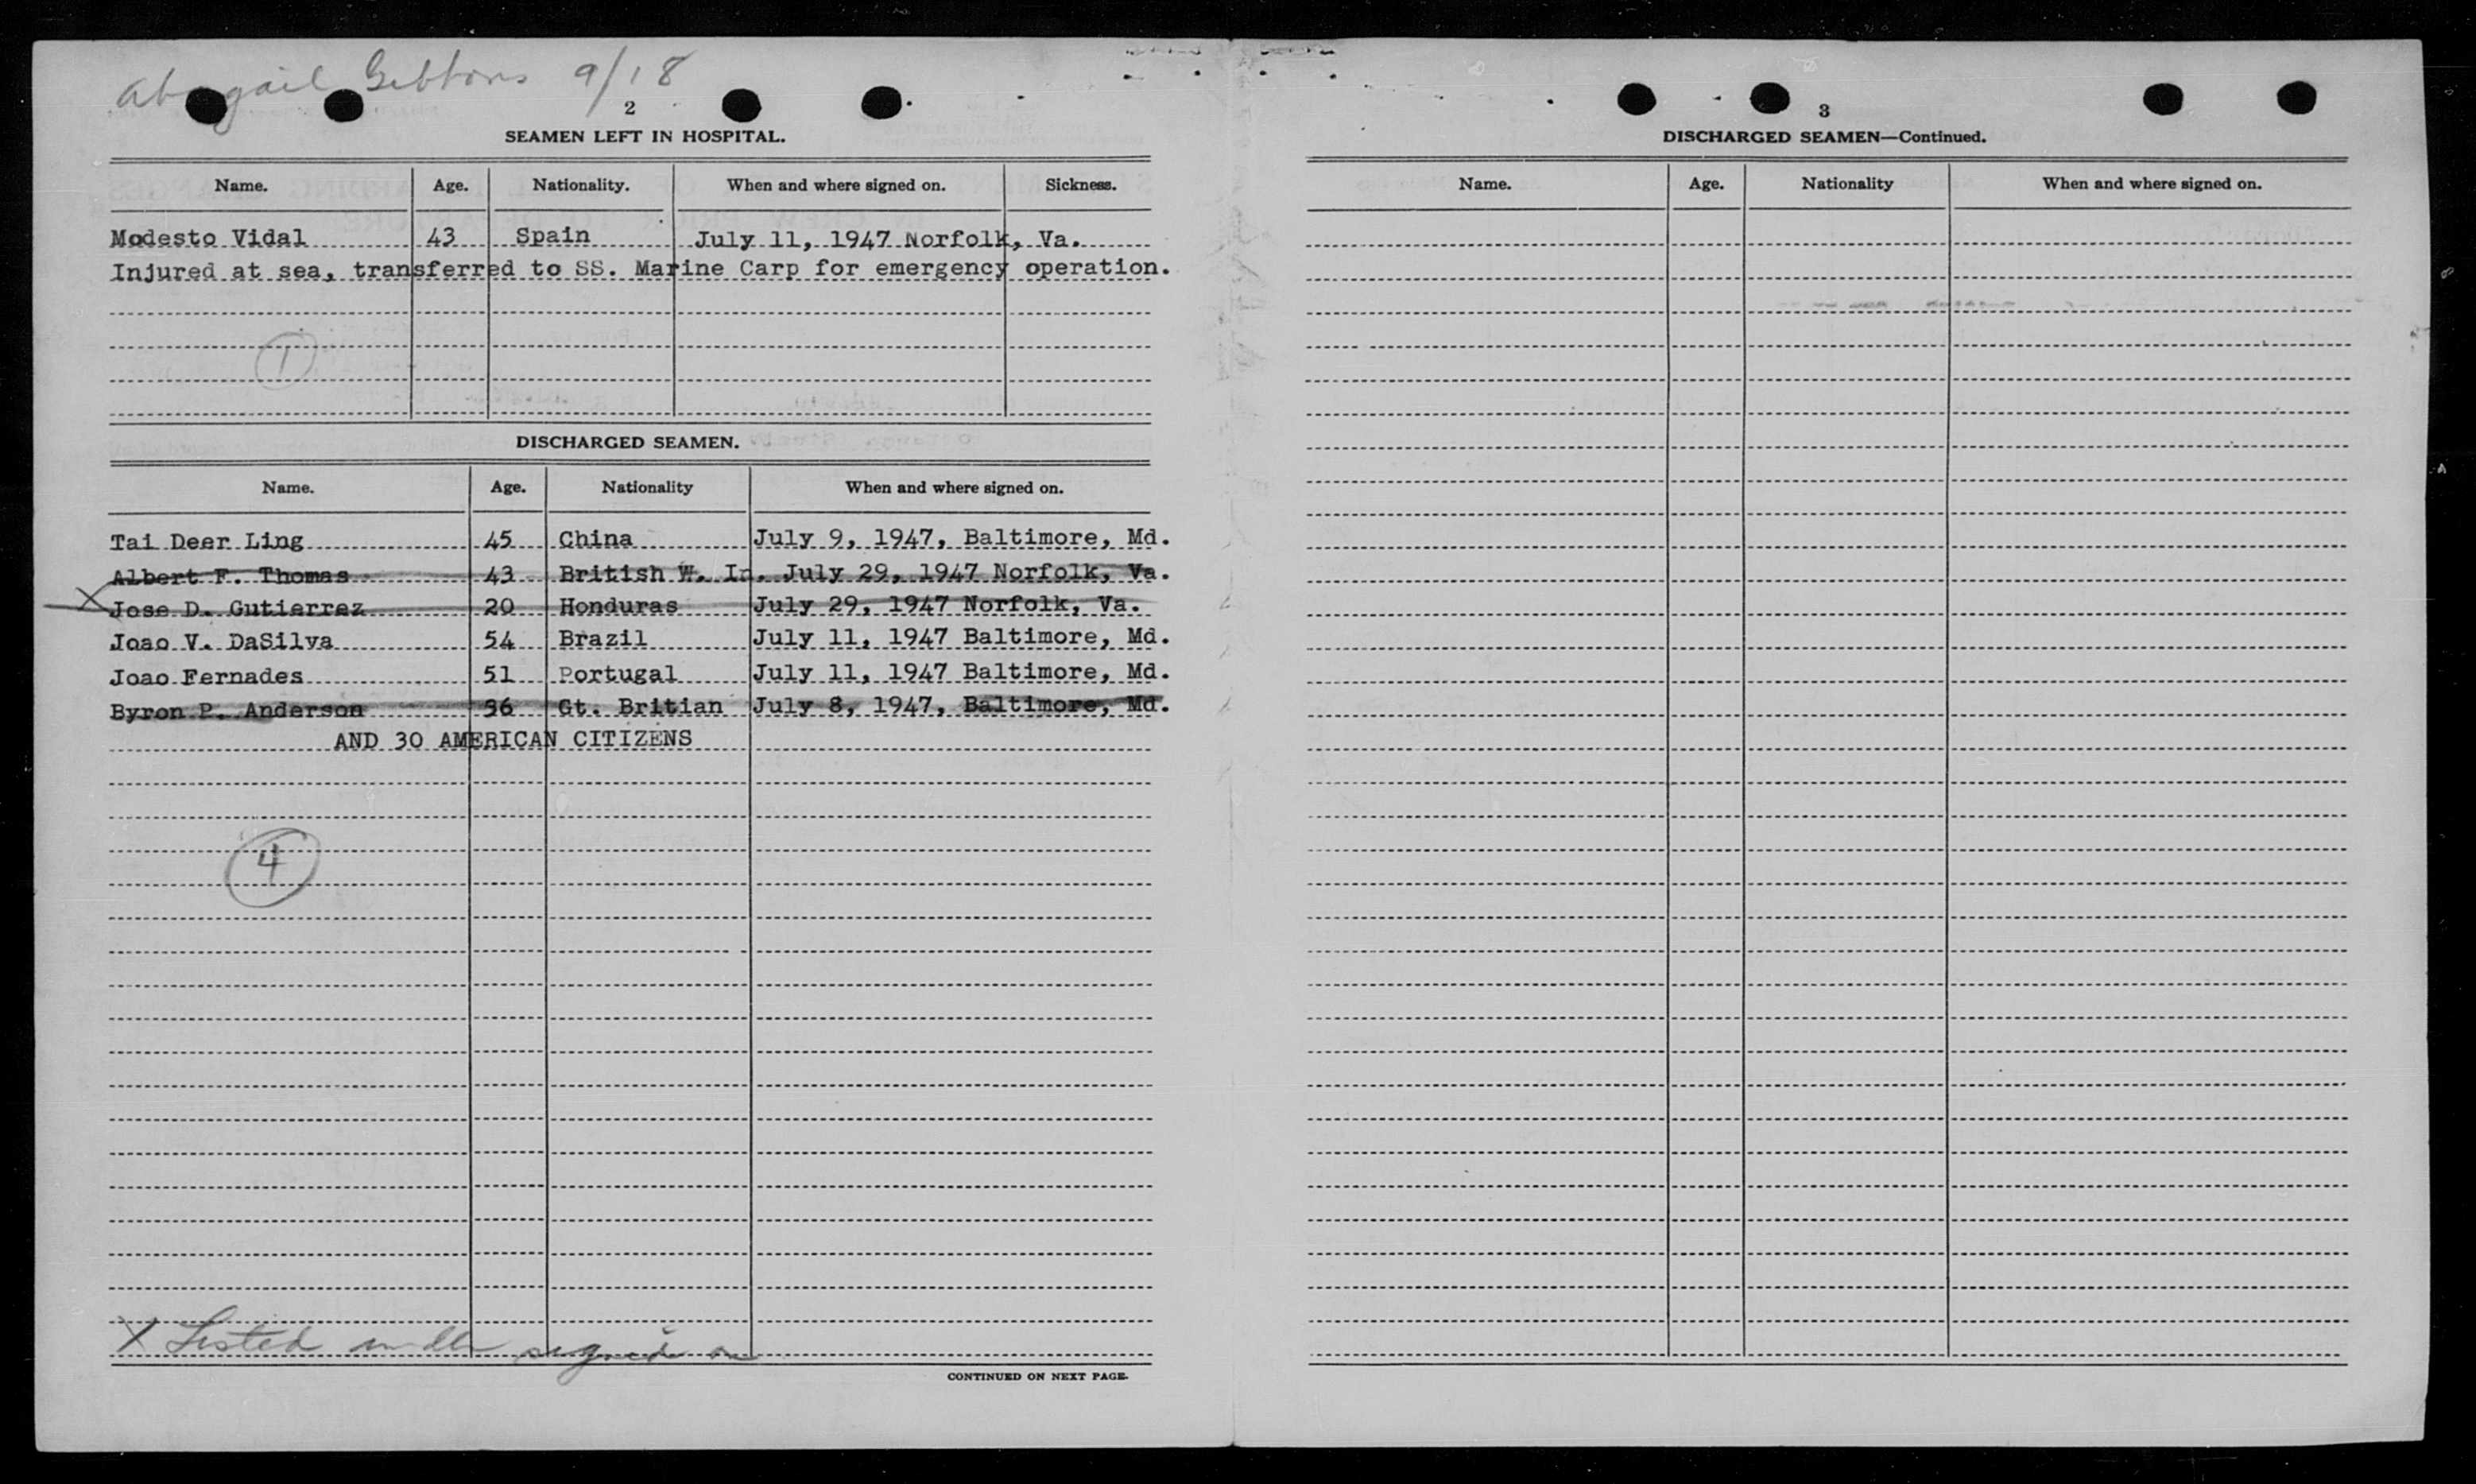 Abagail Gibbons 9/18
2
SEAMEN LEFT IN HOSPITAL.
Name. Age. Nationality. When and where signed on. Sickness.
Modesto Vidal 43 Spain July 11, 1947 Norfolk, Va.
Injured at sea, transferred to SS. Marine Carp for emergency operation.
1
DISCHARGED SEAMEN.
Name. Age. Nationality When and where signed on.
Tai Deer Ling 45 China July 9, 1947, Baltimore, Md.
Albert F. Thomas 43 British W. In. July 29, 1947 Norfolk, Va.
X Jose D. Gutierrez 20 Honduras July 29, 1947 Norfolk, Va.
Joao V. DaSilva 54 Brazil July 11, 1947 Baltimore, Md.
Joao Fernades 51 Portugal July 11, 1947 Baltimore, Md.
Byron P. Anderson 36 Gt. Britian July 8, 1947, Baltimore, Md.
AND 30 AMERICAN CITIZENS
4
X Listed under signed on
CONTINUED ON NEXT PAGE.
3
DISCHARGED SEAMEN—Continued.
Name. Age. Nationality When and where signed on.